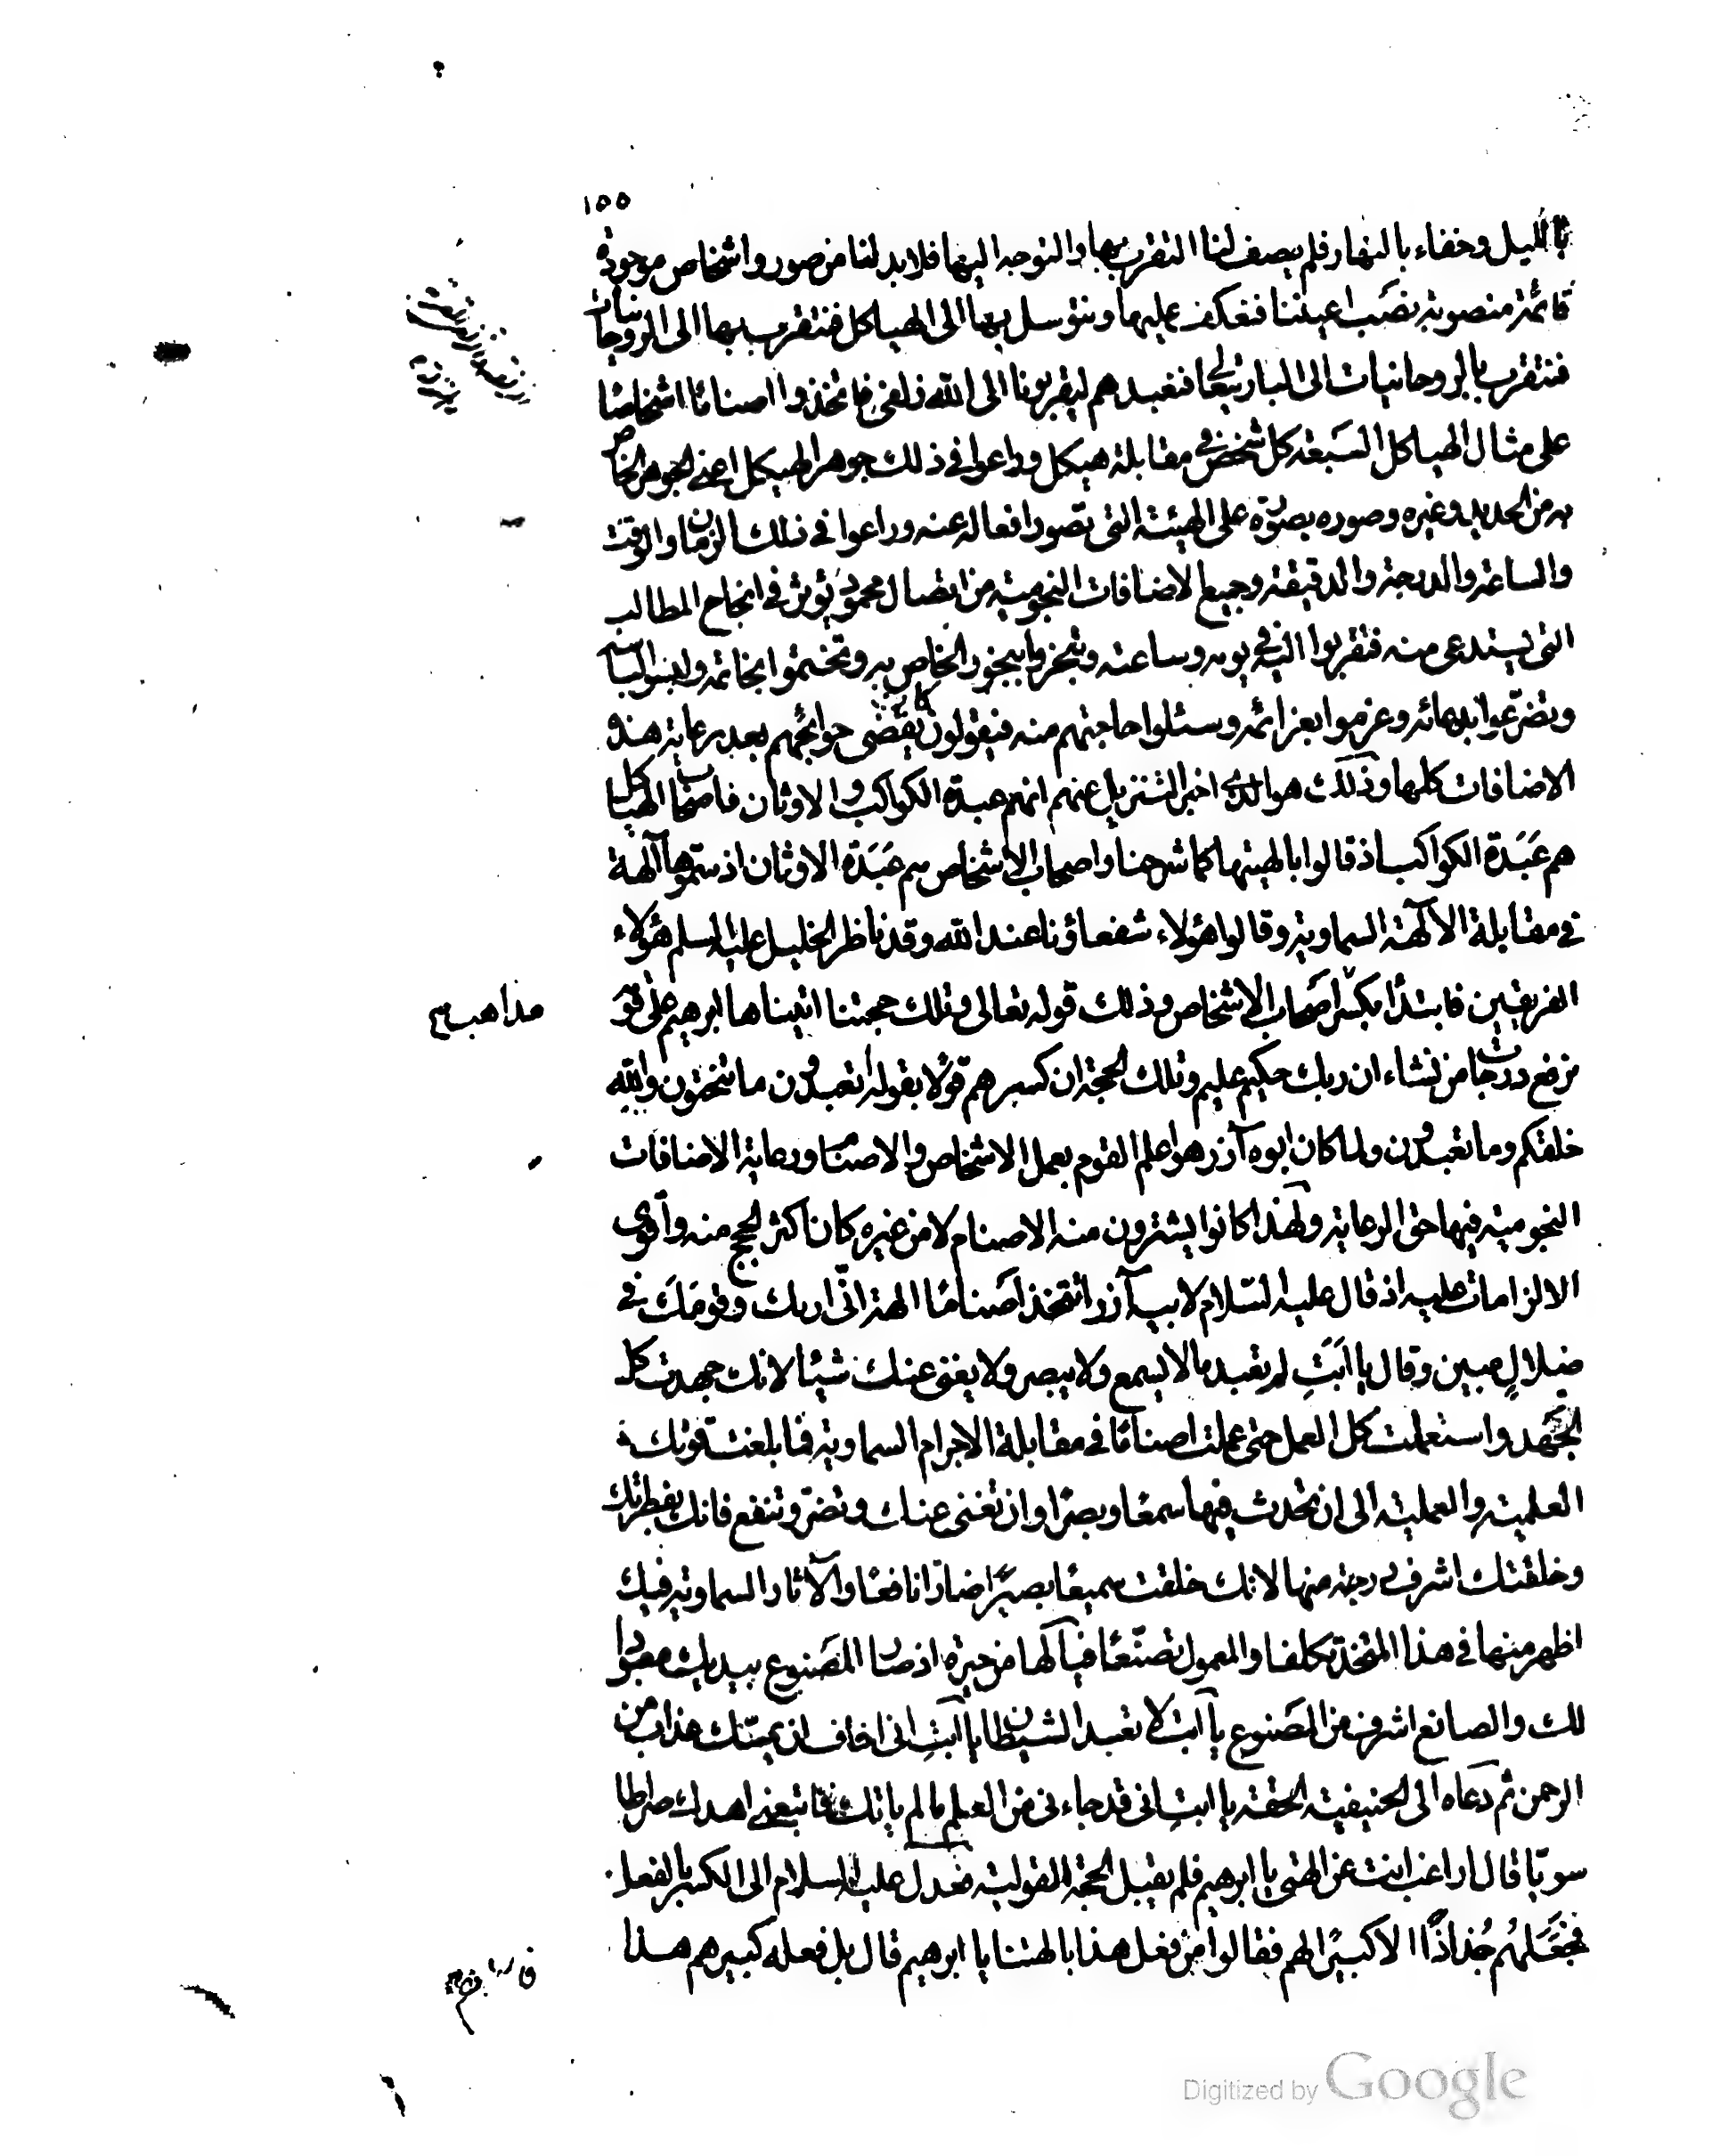 ١٥٥
بالليل وخفاء بالنهار فلم يصف لنا التقرب بها والتوجه اليها فلا بد لنا من صور واشخاص موجودة
قائمة منصوبة نصَب اعيننا فنعكف عليها ونتوسل بها الى الهياكل فنتقرب بها الى الروحانيات
فنتقرب بالروحانيات الى البارئ تعالى فنعبدهم ليقربونا الى الله زلفى فاتخذوا اصنامًا اشخاصًا
على مثال الهياكل السَبعة كل شخص في مقابلة هيكل وراعوا في ذلك جوهر الهيكل اعنى الجوهر الخاص
به من الحديد وغيره وصوره بصورة على الهيئة التى تصور افعاله عنه وراعوا في ذلك الزمان والوقت
والساعة والدرجة والدقيقة وجميع الاضافات النجومية من اتصال محمود يؤثر في انجاح المطالب
التى يستدعى منه فتقربوا اليه في يومه وساعته وتبخروا ببخور الخاص به وتختموا بخاتمه ولبسوا لباسه
وتضرّعوا بدعائه وعزموا بعزائمه وسئلوا حاجتهم منه فيقولون كان يقضى حوائجهم بعد رعاية هذه
الاضافات كلها وذلك هو الذى اخبر التنزيل عنهم انهم عبدة الكواكب والاوثان فاصحاب الهياكل
هم عَبَدة الكواكب اذ قالوا بالهيتها كما شرحنا واصحاب الاشخاص هم عَبَدة الاوثان اذ سمّوها آلهة
في مقابلة الآلهة السماوية وقالوا هؤلاء شفعاؤنا عند الله وقد ناظر الخليل عليه السلم هؤلاء
الفريقين فابتدأ بكسر مذاهب اصَحاب الاشخاص وذلك قوله تعالى وتلك حجتنا اتيناها ابرهيم على قومه
نرفع درجات من نشاء ان ربك حكيم عليم وتلك الحجة ان كسرهم قولًا بقوله أتعبدون ما تنحتون والله
خلقكم وما تعبدون ولما كان ابوه آزر هو اعلم القوم بعمل الاشخاص والاصنام ورعاية الاضافات
النجومية فيها حق الرعاية ولهذا كانوا يشترون منه الاصنام لا من غيره كان اكثر الحجج منه وأقوى
الالزامات عليه اذ قال عليه السّلام لابيه آزر أتتخذ اصَنامًا الهة انّى اريك وقومَكَ في
ضلالٍ مبين وقال يا ابَتِ لم تعبد ما لا يسمع ولا يبصر ولا يغنى عنك شيئا لانك جهدت كل
الجَهد واستعملت كل العمل حتى عملت اصنامًا في مقابلة الاجرام السماوية فما بلغت قوتك
العلمية والعملية الى ان تحدث فيها سمعًا وبصرًا وان تغنى عنك وتضرّ وتنفع فانك بفطرتك
وخلقتك اشرف درجة منها لانك خلقت سميعًا بصيرًا ضارّا نافعًا والآثار السماوية فيك
اظهر منها في هذا المتخذ تكلفا والمعمول تصنّعًا فيا لها من حيرة اذ صار المصَنوع بيديك معبودا
لك والصانع اشرف من المصَنوع يا ابت لا تعبد الشيطان يا ابتِ انى اخاف ان يمسّك عذاب من
الرحمن ثم دعاه الى الحنيفية الحقة يا ابتِ انى قد جاءنى من العلم ما لم ياتك فاتبعنى اهدك صراطا
سويّا قال اراغب انت عن الهتى يا ابرهيم فلم يقبل الحجة القولية فعدل عليه السلام الى الكسر بالفعل
فجَعَلهُم جُذاذًا الا كبيرًا لهم فقالوا من فعل هذا بالهتنا يا ابرهيم قال بل فعله كبيرهم هذا